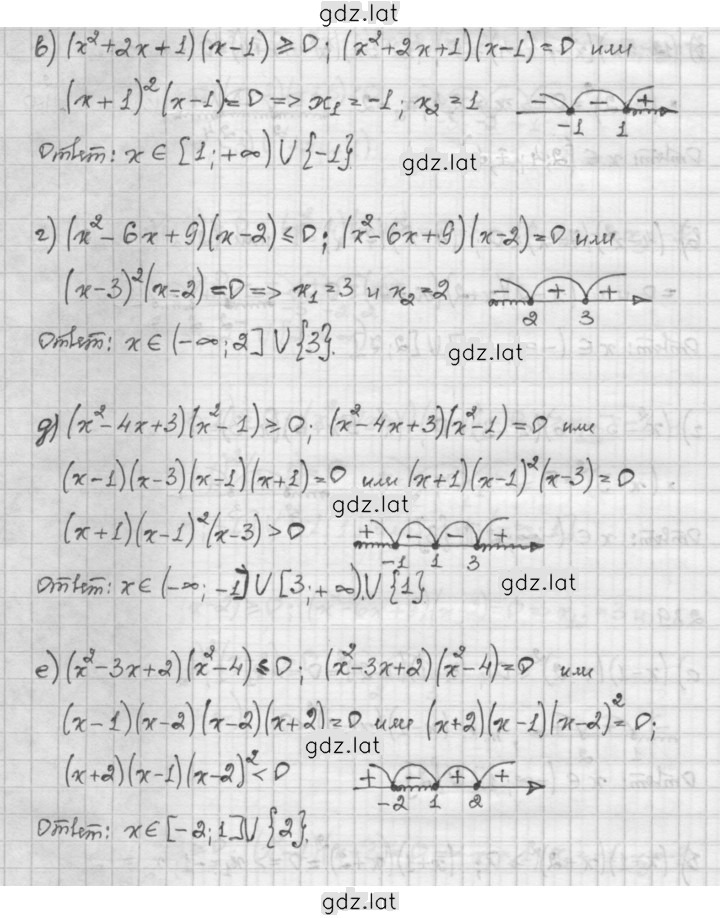 gdz.lat
в) (x²+2x+1)(x-1) ≥ 0; (x²+2x+1)(x-1)=0 или
(x+1)²(x-1)=0 => x₁=-1; x₂=1
- - +
-1 1
Ответ: x ∈ [1; +∞) ∪ {-1}
gdz.lat
г) (x²-6x+9)(x-2) ≤ 0; (x²-6x+9)(x-2)=0 или
(x-3)²(x-2)=0 => x₁=3 и x₂=2
- + +
2 3
Ответ: x ∈ (-∞; 2] ∪ {3}.
gdz.lat
д) (x²-4x+3)(x²-1) ≥ 0; (x²-4x+3)(x²-1)=0 или
(x-1)(x-3)(x-1)(x+1)=0 или (x+1)(x-1)²(x-3)=0
gdz.lat
(x+1)(x-1)²(x-3)>0
+ - - +
-1 1 3
Ответ: x ∈ (-∞; -1] ∪ [3; +∞) ∪ {1}
gdz.lat
е) (x²-3x+2)(x²-4) ≤ 0; (x²-3x+2)(x²-4)=0 или
(x-1)(x-2)(x-2)(x+2)=0 или (x+2)(x-1)(x-2)²=0;
gdz.lat
(x+2)(x-1)(x-2)²<0
+ - + +
-2 1 2
Ответ: x ∈ [-2; 1] ∪ {2}.
gdz.lat